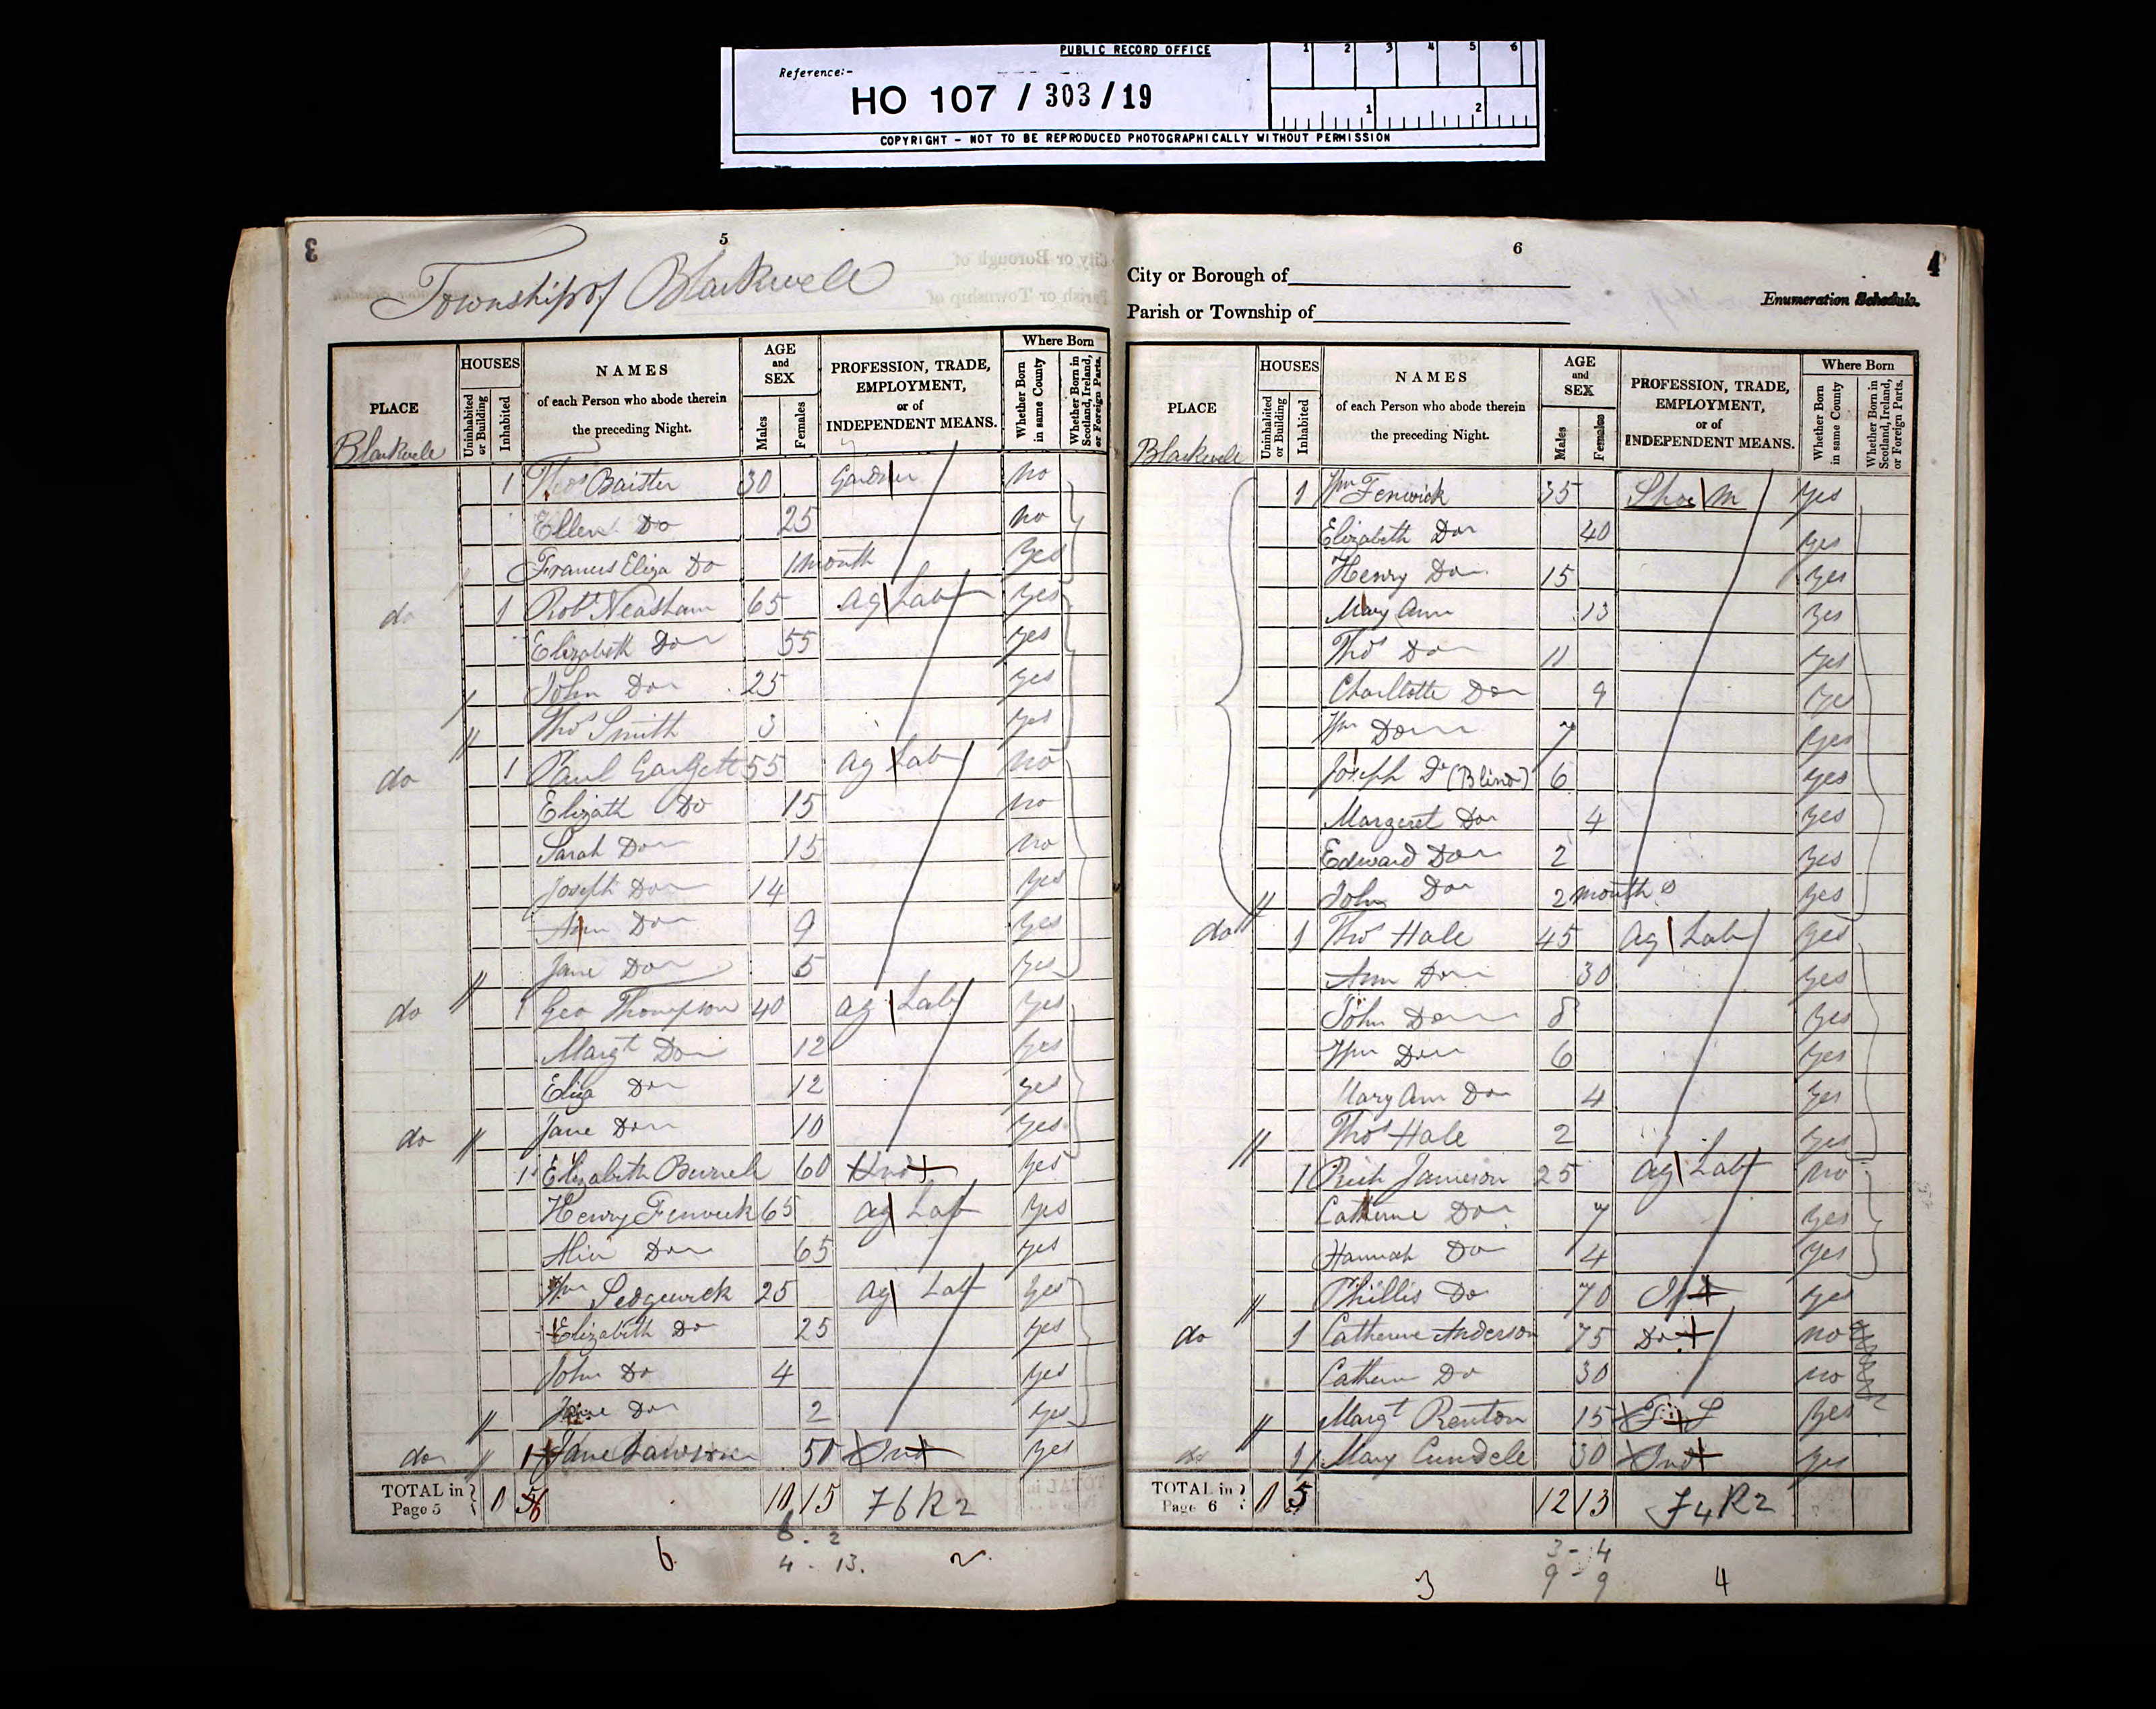 PUBLIC RECORD OFFICE
Reference:-
HO 107 / 303 / 19
1 2 3 4 5 6
1 2
COPYRIGHT - NOT TO BE REPRODUCED PHOTOGRAPHICALLY WITHOUT PERMISSION
3
5
Township of Blackwell
PLACE
HOUSES
Uninhabited or Building
Inhabited
NAMES
of each Person who abode therein
the preceding Night.
AGE and SEX
Males
Females
PROFESSION, TRADE,
EMPLOYMENT,
or of
INDEPENDENT MEANS.
Where Born
Whether Born in same County
Whether Born in Scotland, Ireland, or Foreign Parts.
Blackwell
1 Thos Baister 30 Gardner no
Ellen Do 25 no
Frances Eliza Do 1 month Yes
do 1 Robt Neasham 65 Ag Lab Yes
Elizabeth Do 55 Yes
John Do 25 Yes
Thos Smith 3 Yes
do 1 Paul 55 Ag Lab no
Elizath Do 15 no
Sarah Do 15 no
Joseph Do 14 Yes
Ann Do 9 Yes
Jane Do 5 Yes
do 1 Geo Thompson 40 Ag Lab Yes
Margt Do 12 Yes
Eliza Do 12 yes
Jane Do 10 Yes
do
1 Elizabeth Burrell 60 Ind Yes
Henry Fenwick 65 Ag Lab Yes
Do 65 yes
Wm Sedgewick 25 Ag Lab Yes
Elizabeth Do 25 Yes
John Do 4 Yes
Jane Do 2 Yes
do 1 Jane Lawson 50 Ind Yes
TOTAL in Page 5 0 10 15 76 R2
6. 2
4 - 13.
6
2
6
4
City or Borough of
Parish or Township of
Enumeration Schedule.
PLACE
HOUSES
Uninhabited or Building
Inhabited
NAMES
of each Person who abode therein
the preceding Night.
AGE and SEX
Males
Females
PROFESSION, TRADE,
EMPLOYMENT,
or of
INDEPENDENT MEANS.
Where Born
Whether Born in same County
Whether Born in Scotland, Ireland, or Foreign Parts.
Blackwell
1 Wm Fenwick 35 Shoe M Yes
Elizabeth Do 40 Yes
Henry Do 15 Yes
Mary Ann 13 Yes
Thos Do 11 Yes
Charllotte Do 9 Yes
Wm Do 7 Yes
Joseph Do (Blind) 6 Yes
Margeret Do 4 Yes
Edward Do 2 Yes
John Do 2 months Yes
do 1 Thos Hale 45 Ag Lab Yes
Ann Do 30 Yes
John Do 8 Yes
Wm Do 6 Yes
Mary Ann Do 4 Yes
Thos Hale 2 Yes
1 Rich Jameson 25 Ag Lab no
Catherine Do 7 Yes
Hannah Do 4 Yes
Phillis Do 70 Yes
do 1 Catherine Anderson 75 Do no
Cathern Do 30 no
Margt Renton 15 F S Yes
do 1 Mary Cundele 30 Ind Yes
TOTAL in Page 6 0 5 12 13 74 R2
3 - 4
9 - 9
3
4